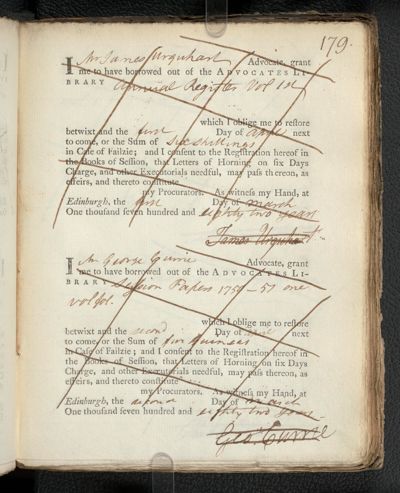 179.
I Mr James Urquhart Advocate, grant
me to have borrowed out of the ADVOCATES LI-
BRARY Annual Register Vol 1st
which I oblige me to restore
betwixt and the first Day of April next
to come, or the Sum of Six shillings
in Case of Failzie; and I consent to the Registration hereof in
the Books of Session, that Letters of Horning on six Days
Charge, and other Executorials needful, may pass thereon, as
effeirs, and thereto constitute
my Procurators. As witness my Hand, at
Edinburgh, the first Day of March
One thousand seven hundred and eighty two years
James Urquhart
I Mr George Currie Advocate, grant
me to have borrowed out of the ADVOCATES LI-
BRARY Session Papers 1757-57 one
vol fol.
which I oblige me to restore
betwixt and the second Day of next
to come, or the Sum of five guineas
in Case of Failzie; and I consent to the Registration hereof in
the Books of Session, that Letters of Horning on six Days
Charge, and other Executorials needful, may pass thereon, as
effeirs, and thereto constitute
my Procurators. As witness my Hand, at
Edinburgh, the second Day of March
One thousand seven hundred and eighty two years
Geo: Currie